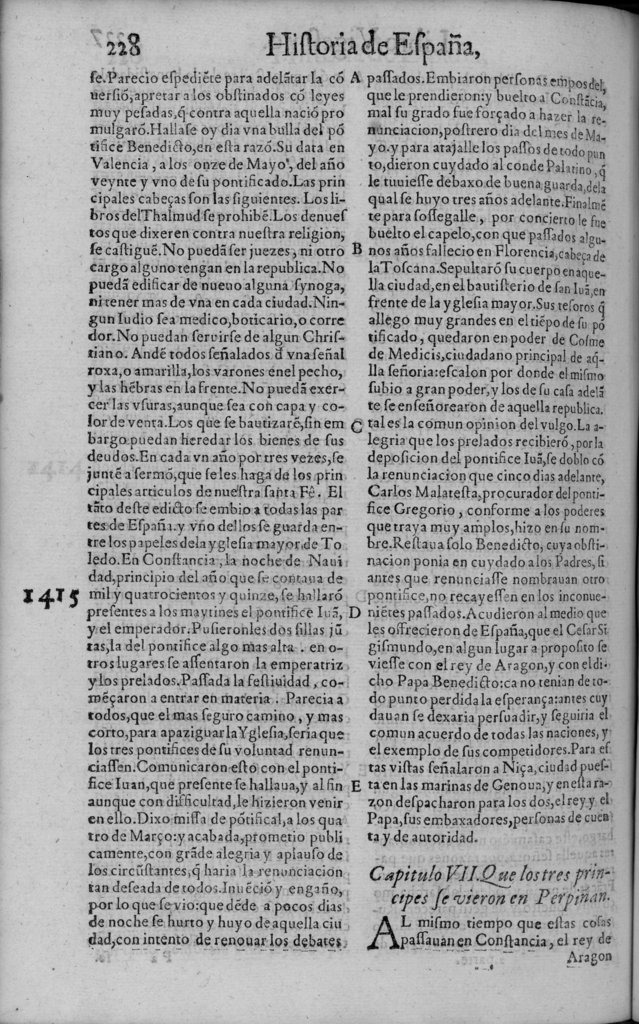 228
Historia de España,
se. Parecio espediẽte para adelãtar la cõ
uersiõ, apretar a los obstinados cõ leyes
muy pesadas, q̃ contra aquella naciõ pro
mulgarõ. Hallase oy dia vna bulla del põ
tifice Benedicto, en esta razõ. Su data en
Valencia, a los onze de Mayo, del año
veynte y vno de su pontificado. Las prin
cipales cabeças son las siguientes. Los li-
bros del Thalmud se prohibẽ. Los denues
tos que dixeren contra nuestra religion,
se castiguẽ. No puedã ser juezes, ni otro
cargo alguno tengan en la republica. No
puedã edificar de nueuo alguna synoga,
ni tener mas de vna en cada ciudad. Nin-
gun Iudio sea medico, boticario, o corre
dor. No puedan seruirse de algun Chris-
tiano. Andẽ todos señalados d̃ vna señal
roxa, o amarilla, los varones en el pecho,
y las hẽbras en la frente. No puedã exer-
cer las vsuras, aunque sea con capa y co-
lor de venta. Los que se bautizarẽ, sin em
bargo puedan heredar los bienes de sus
deudos. En cada vn año por tres vezes, se
juntẽ a sermõ, que se les haga de los prin
cipales articulos de nuestra santa Fê. El
tãto deste edicto se embio a todas las par
tes de España: y vno dellos se guarda en-
tre los papeles de la yglesia mayor de To
ledo. En Constancia, la noche de Naui
dad, principio del año que se contaua de
1415
mil y quatrocientos y quinze, se hallarõ
presentes a los maytines el pontifice Iuã,
y el emperador. Pusieronles dos sillas jũ
tas, la del pontifice algo mas alta. en o-
tros lugares se assentaron la emperatriz
y los prelados. Passada la festiuidad, co-
mẽçaron a entrar en materia. Parecia a
todos, que el mas seguro camino, y mas
corto, para apaziguar la Yglesia, seria que
los tres pontifices de su voluntad renun-
ciassen. Comunicaron esto con el ponti-
fice Iuan, que presente se hallaua, y al fin
aunque con difficultad, le hizieron venir
en ello. Dixo missa de põtifical, a los qua
tro de Março: y acabada, prometio publi
camente, con grãde alegria y aplauso de
los circũstantes, q̃ haria la renunciacion
tan deseada de todos. Inuẽciõ y engaño,
por lo que se vio: que dẽde a pocos dias
de noche se hurto y huyo de aquella ciu
dad, con intento de renouar los debates
A
passados. Embiaron personas empos del,
que le prendieron: y buelto a Constãcia,
mal su grado fue forçado a hazer la re-
nunciacion, postrero dia del mes de Ma-
yo. y para atajalle los passos de todo pun
to, dieron cuydado al conde Palatino, q̃
le tuuiesse debaxo de buena guarda, de la
qual se huyo tres años adelante. Finalmẽ
te para sossegalle, por concierto le fue
buelto el capelo, con que passados algu-
B
nos años fallecio en Florencia, cabeça de
la Toscana. Sepultarõ su cuerpo en aque-
lla ciudad, en el bautisterio de san Iuã, en
frente de la yglesia mayor. Sus tesoros q̃
allego muy grandes en el tiẽpo de su põ
tificado, quedaron en poder de Cosme
de Medicis, ciudadano principal de aq̃-
lla señoria: escalon por donde el mismo
subio a gran poder, y los de su casa adelã
te se enseñorearon de aquella republica.
C
tal es la comun opinion del vulgo. La a-
legria que los prelados recibierõ, por la
deposicion del pontifice Iuã, se doblo cõ
la renunciacion que cinco dias adelante,
Carlos Malatesta, procurador del ponti-
fice Gregorio, conforme a los poderes
que traya muy amplos, hizo en su nom-
bre. Restaua solo Benedicto, cuya obsti-
nacion ponia en cuydado a los Padres, si
antes que renunciasse nombrauan otro
pontifice, no recayessen en los inconue-
D
niẽtes passados. Acudieron al medio que
les offrecieron de España, que el Cesar Si
gismundo, en algun lugar a proposito se
viesse con el rey de Aragon, y con el di-
cho Papa Benedicto: ca no tenian de to-
do punto perdida la esperança: antes cuy
dauan se dexaria persuadir, y seguiria el
comun acuerdo de todas las naciones, y
el exemplo de sus competidores. Para es
tas vistas señalaron a Niça, ciudad pues-
E
ta en las marinas de Genoua, y en esta ra-
zon despacharon para los dos, el rey y el
Papa, sus embaxadores, personas de cuen
ta y de autoridad.
Capitulo VII. Que los tres prin-
cipes se vieron en Perpiñan.
AL mismo tiempo que estas cosas
passauan en Constancia, el rey de
Aragon